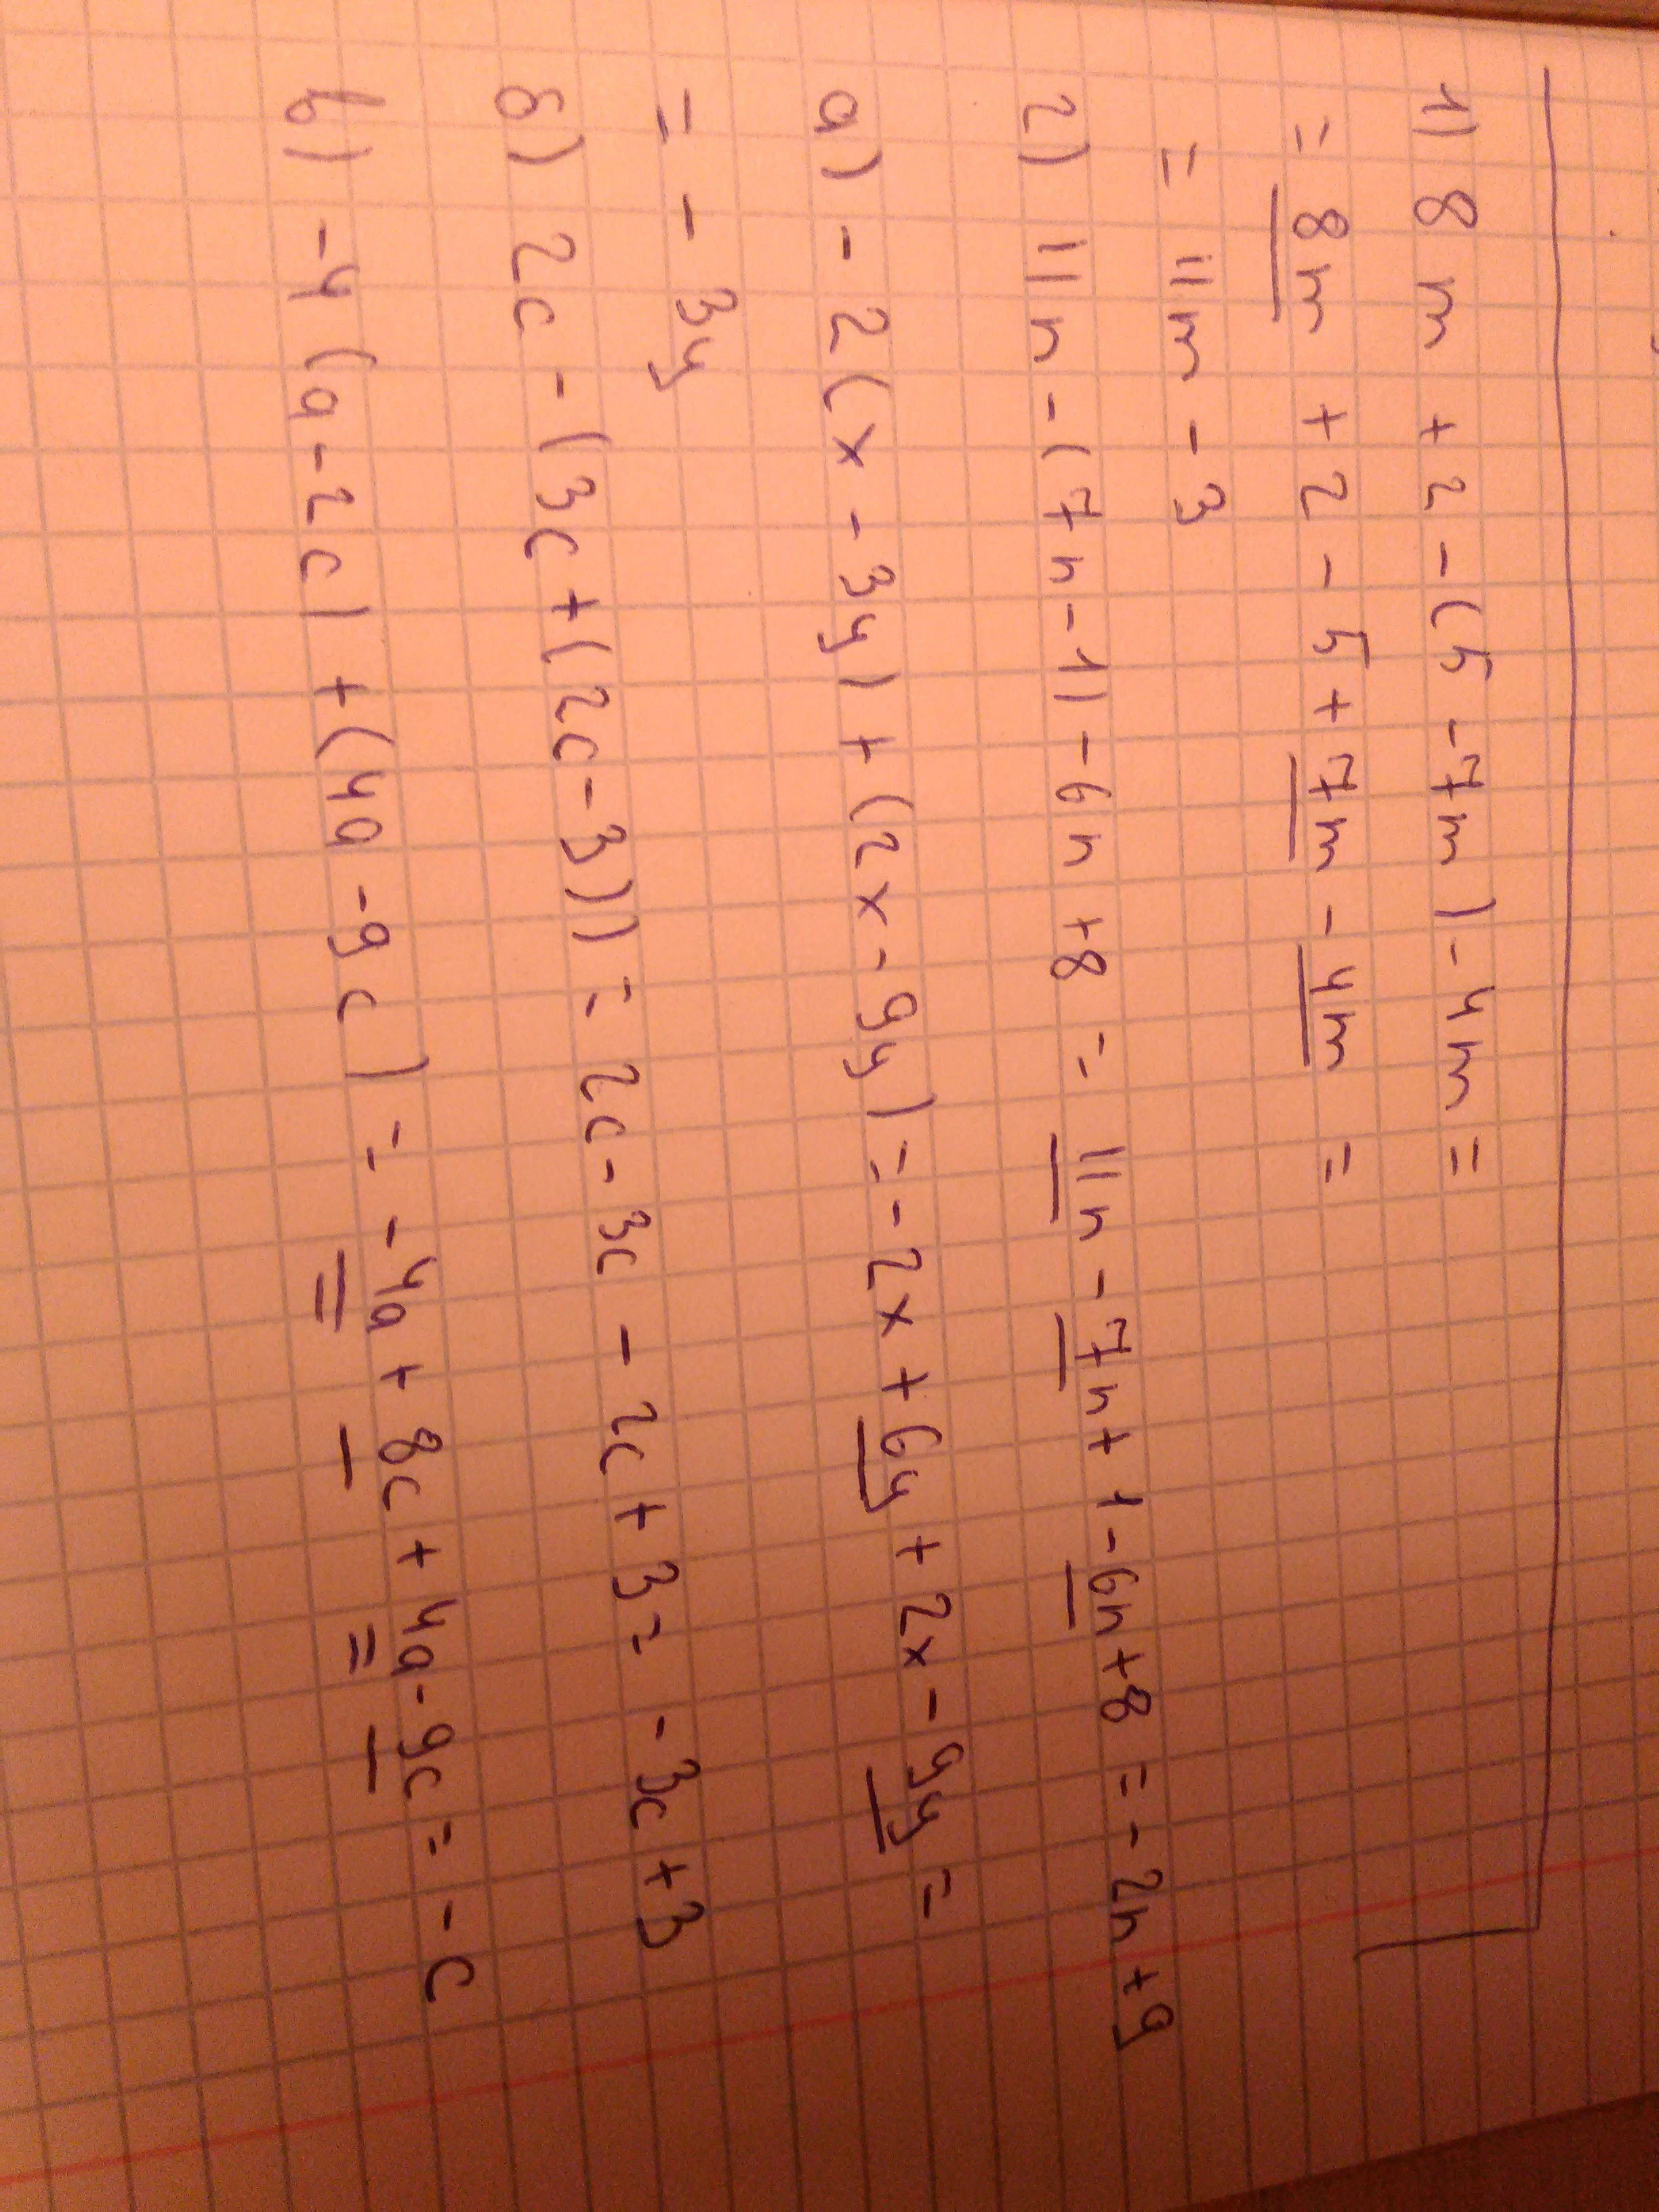 1) 8m + 2 - (5 - 7m) - 4m =
= 8m + 2 - 5 + 7m - 4m =
= 11m - 3
2) 11n - (7n - 1) - 6n + 8 = 11n - 7n + 1 - 6n + 8 = - 2n + 9
а) - 2(x - 3y) + (2x - 9y) = - 2x + 6y + 2x - 9y =
= - 3y
б) 2c - (3c + (2c - 3)) = 2c - 3c - 2c + 3 = - 3c + 3
в) -4(a - 2c) + (4a - 9c) = - 4a + 8c + 4a - 9c = - c